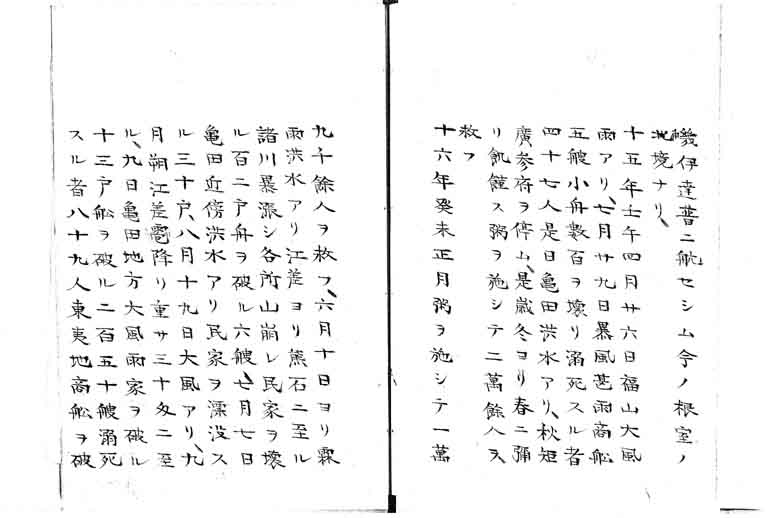 幾伊達普ニ航セシム今ノ根室ノ
北境ナリ、
十五年壬午四月廿六日福山大風
雨アリ、七月廿九日暴風甚雨商舩
五艘小舟數百ヲ壊リ溺死スル者
四十七人是日亀田洪水アリ、秋矩
廣参府ヲ停ム、是歳冬ヨリ春ニ彌
リ飢饉ス粥ヲ施シテ二萬餘人ヲ
救フ
十六年癸未正月粥ヲ施シテ一萬
九千餘人ヲ救フ、六月十日ヨリ霖
雨洪水アリ江差ヨリ熊石ニ至ル
諸川暴漲シ各所山崩レ民家ヲ壊
ル百二戸舟ヲ破ル六艘、七月七日
亀田近傍洪水アリ民家ヲ漂没ス
ル三十戸、八月十九日大風アリ、九
月朔江差雹降リ重サ三十匁ニ至
ル、九日亀田地方大風雨家ヲ破ル
十三戸舩ヲ破ル二百五十艘溺死
スル者八十九人東夷地商舩ヲ破